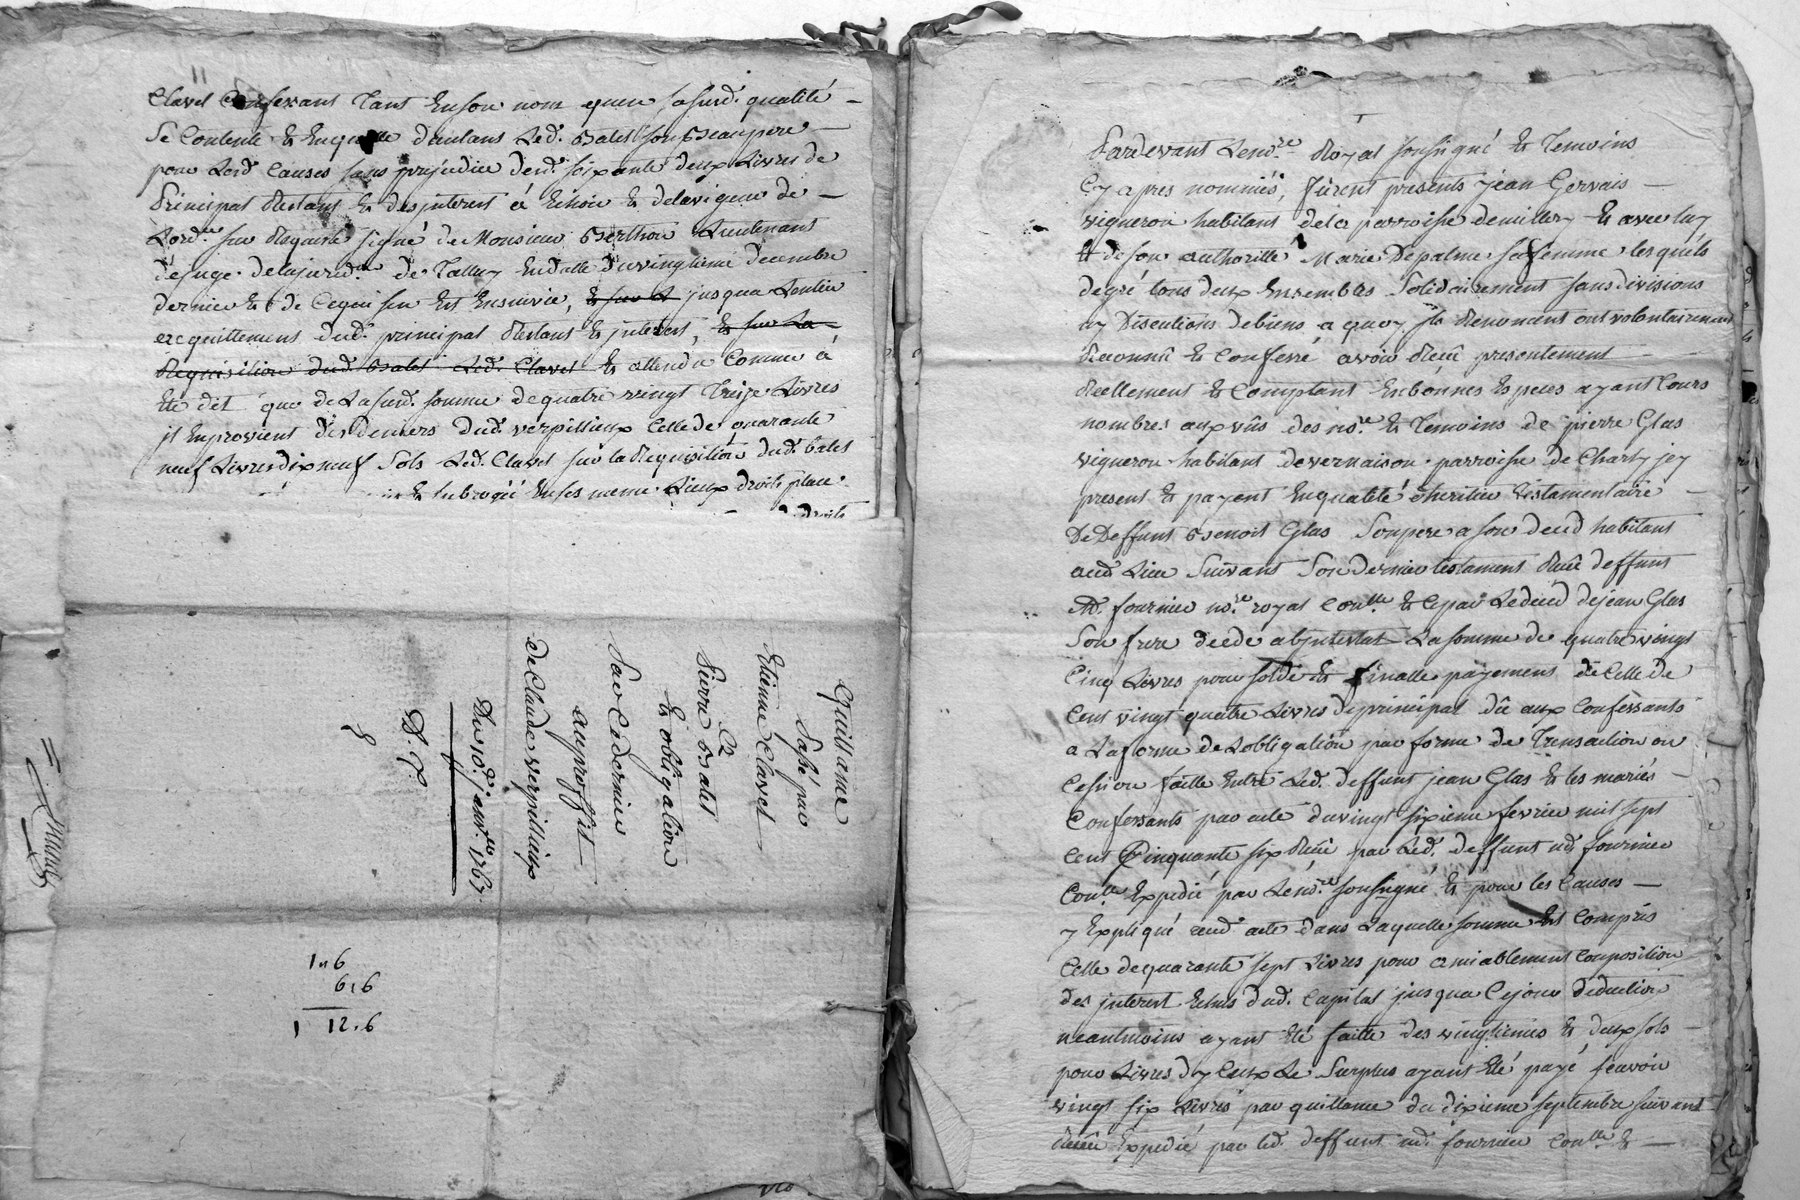 Clavel Confessant tant en son nom quen sasusd. qualité
Se Contente & Enquitte dautans Led. balet son Beaupere
pour Lesd. Causes sans prejudice desd. soixante deux Livres de
Principal Restant & des interest à Echoir & de la vigueur de
Lord.ce sur Requeste signé de Monsieur Berthon Lieutenant
de juge de la jurid.on de Talluy en datte du vingtieme decembre
dernier & de Cequi sen Est Ensuivie, & sur L jusqua Lentier
acquittement dud. principal Restant & interest, & sur La
Requisition dud. balet Led. Clavel & attendu Comme à
Eté dit que de La susd. somme de quatre vingt Treize Livres
jl En provient des deniers dud. verpillieux Celle de quarante
neuf Livres dix neuf Sols Led. Clavel sur la Requisition dud. balet
& subrogé En ses meme Lieux droits place
droits
Quittance
Passé par
Etienne Clavel
a
Pierre balet
& obligation
Par Ce dernier
au proffit
de Claude verpillieux
Du 10.e janv.er 1767
D. C.
1 " 6
6 , 6
1 12 . 6
Pardevant Leno.re Royal soussigné & Temoins
Cy apres nommés, fûrent presents jean Gervais
vigneron habitant dela parroisse de millery & avec luy
& de son authorité Marie Depalme sa femme lesquels
de gré tous deux Ensembles Solidairement sans divisions
ny Discutions de biens a quoy jls Renoncent ont volontairement
Reconnû & Confessé avoir Reçû presentement
Reellement & Comptant En bonnes Especes ayant Cours
nombrés aux vûs des no.re & Temoins de pierre Glas
vigneron habitant de vernaison parroisse de Charly jcy
present & payent En qualité dheritier testamentaire
De Deffunt Benoit Glas Son pere a son deced habitant
aud. Lieu Suivant Son dernier testament Reçû deffunt
M.e fournier no.re royal Con.lle & Cepar Le deced de jean Glas
Son frere decedé abjntestat La somme de quatre vingt
Cinq Livres pour solde & finalle payement de Celle de
Cent vingt quatre Livres de principal dûe aux Confessants
a La forme de Lobligation par forme de Transaction ou
Cession faitte Entre Led. deffunt jean Glas & les mariés
Confessants par acte du vingt sixieme fevrier mil sept
Cent Cinquante six Reçû par Led. deffunt m.e fournier
Con.lle Expedié par Leno.re soussigné & pour les Causes
y Expliqué aud. acte dans Laquelle somme Est Compris
Celle de quarante sept Livres pour amiablement Composition
des jnterest Echus dud. Capital jusqua Cejour deduction
neantmoins ayant Eté faitte des vingtiemes & deux sols
pour Livres dyceux Le Surplus ayant Eté payé scavoir
vingt six Livres par quittance du dixieme septembre suivant
Reçûe Expedié par led. deffunt m.e fournier Con.lle &